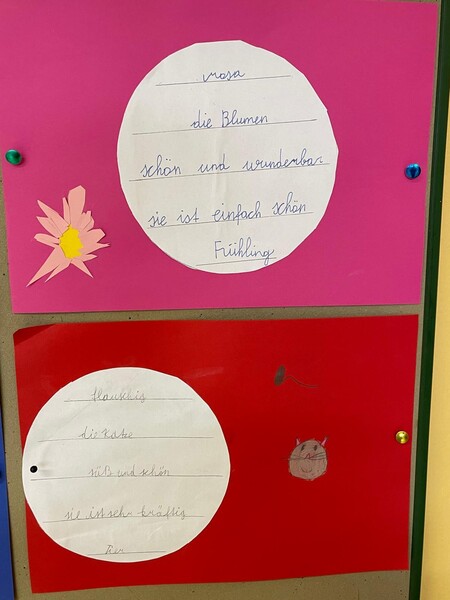 rosa
die Blumen
schön und wunderbar
sie ist einfach schön
Frühling
flauschig
die Katze
süß und schön
sie ist sehr kräftig
Tier